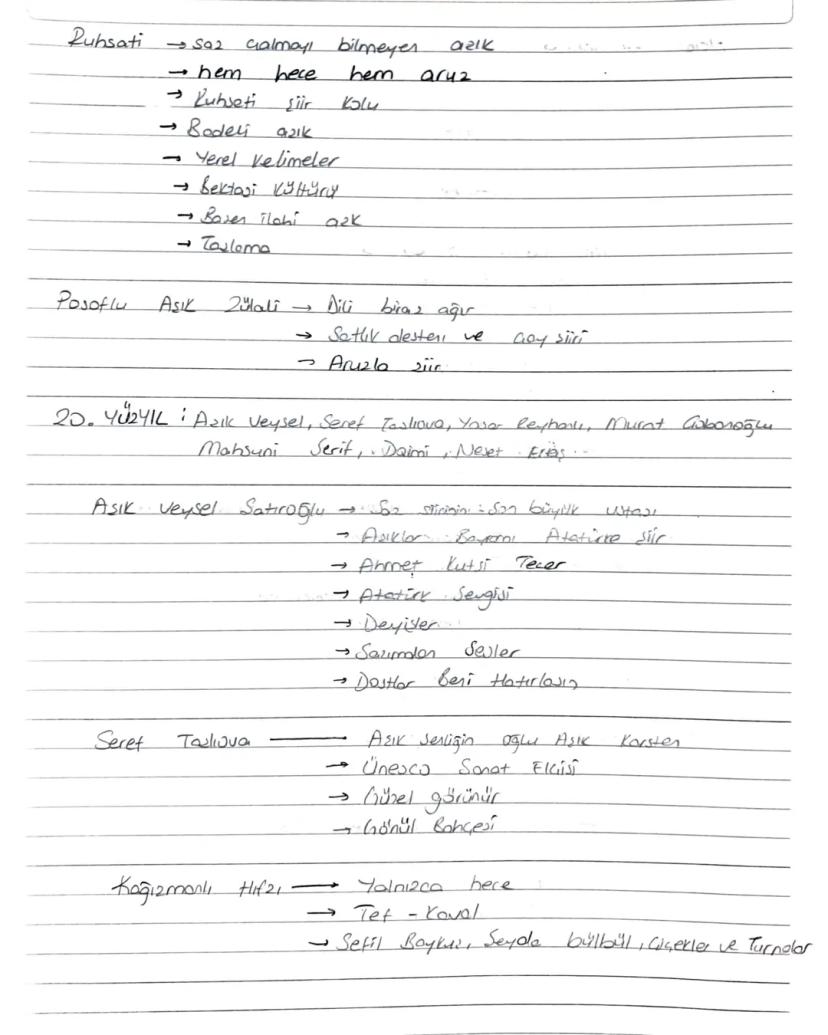 Ruhsati → saz çalmayı bilmeyen aşık
→ hem hece hem aruz
→ Ruhsati şiir kolu
→ Badeli aşık
→ Yerel kelimeler
→ Bektaşi Kültürü
→ Bazen ilahi aşk
→ Taşlama
Posoflu Aşık Zülali → Dili biraz ağır
→ Satlık destanı ve çay şiiri
→ Aruzla şiir
20. YÜZYIL : Aşık Veysel, Şeref Taşlıova, Yaşar Reyhani, Murat Çobanoğlu
Mahsuni Şerif, Daimi, Neşet Ertaş
Aşık Veysel Şatıroğlu → Saz şiirinin son büyük ustası
→ Aşıklar Bayramı Atatürke şiir
→ Ahmet Kutsi Tecer
→ Atatürk Sevgisi
→ Deyişler
→ Sazımdan Sesler
→ Dostlar Beni Hatırlasın
Şeref Taşlıova → Aşık Şenliğin oğlu Aşık Kasten
→ Ünesco Sanat Elçisi
→ Güzel görünür
→ Gönül Bahçesi
Kağızmanlı Hıfzı → Yalnızca hece
→ Tef - Kaval
→ Sefil Baykuş, Şeyda bülbül, Çiçekler ve Turnalar